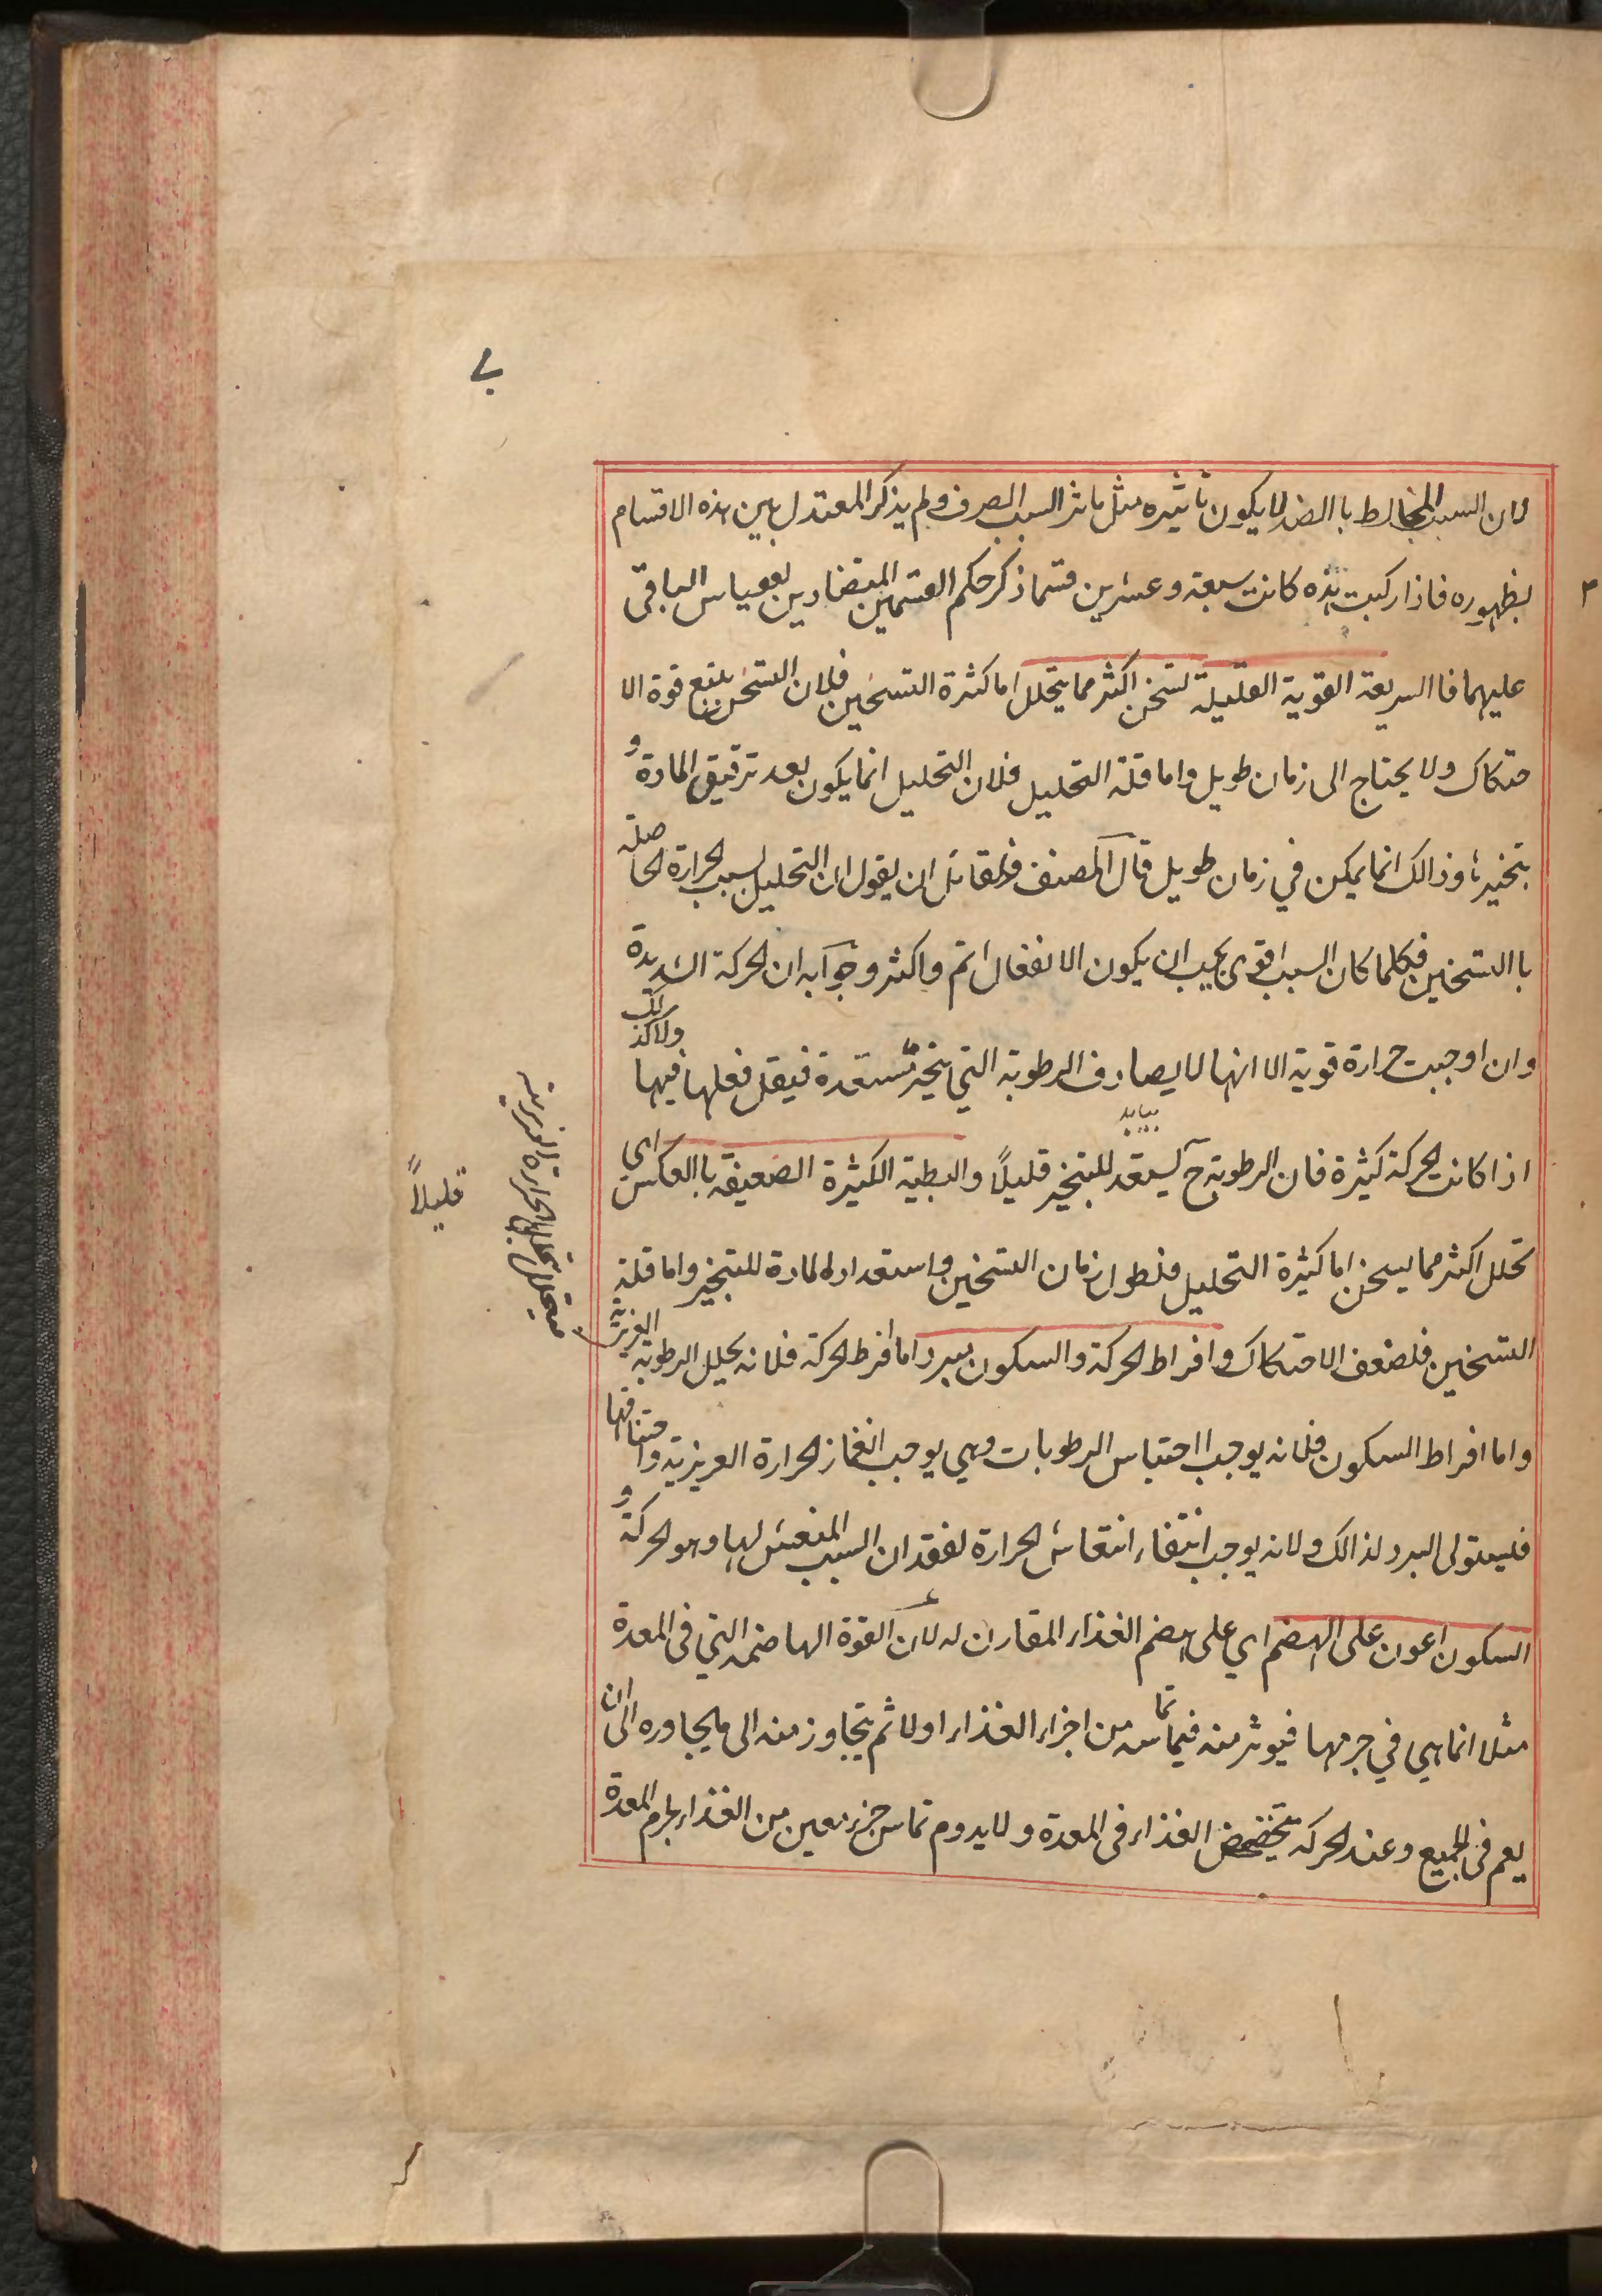 لان السبب المخالط باالضد لا يكون تأثيره مثل تاثر السبب الصرف ولم يذكر المعتدل بين هذه الاقسام
بظهوره فاذا ركبت هذه كانت سبعة وعشرين قسما ذكر حكم القسمين المتضادين ليقياس الباقى
عليهما فاالسريعة القوية القليلة تسخن اكثر مما يتحلل اما كثرة التسخين فلان التسخن يتبع قوة الا
حتكاك ولا يحتاج الى زمان طويل واما قلة التحليل فلان التحليل انما يكون بعد ترقيق المادة و
بتخيرها وذالك انما يمكن في زمان طويل قال المصنف فلقائل ان يقول ان التحليل بسبب الحرارة الحاصلة
باالتسخين فكلما كان السبب اقوى يجب ان يكون الانفعال اتم واكثر وجوابه ان الحركة الشديدة
وان اوجبت حرارة قوية الا انها لا يصادف الرطوبة التي يتخير مستعدة فيقل فعلها فيها ولاكذالك
اذا كانت الحركة كثيرة فان الرطوبة ح يستعد للتبخير قليلاً والبطية الكثيرة الضعيفة باالعكس اى
تحلل اكثر مما يسخن اما كثرة التحليل فلطول زمان التسخين واستعداد المادة للتبخير واما قلة
التسخين فلضعف الاحتكاك وافراط الحركة والسكون يبرد اما افرط الحركة فلانه يحلل الرطوبة الغريزية
واما افراط السكون فلانه يوجب احتباس الرطوبات وهي يوجب انغماز الحرارة الغريزية واختناقها
فيستولى البرد لذالك ولانه يوجب انتفاء انتعاش الحرارة لفقدان السبب المنعش لها وهو الحركة و
السكون اعون على الهضم اي على هضم الغذاء المقارن له لان القوة الهاضمة التي فى المعدة
مثلا انماهي في جرمها فيوثر منه فيما تماسه من اجزاء الغذاء اولا ثم يتجاوز منه الى مايجاوره الى ان
يعم فى الجميع وعند الحركة يتخضخض الغذاء فى المعدة ولا يدوم تماس جزء معين من الغذاء بجرم المعدة
قليلاً